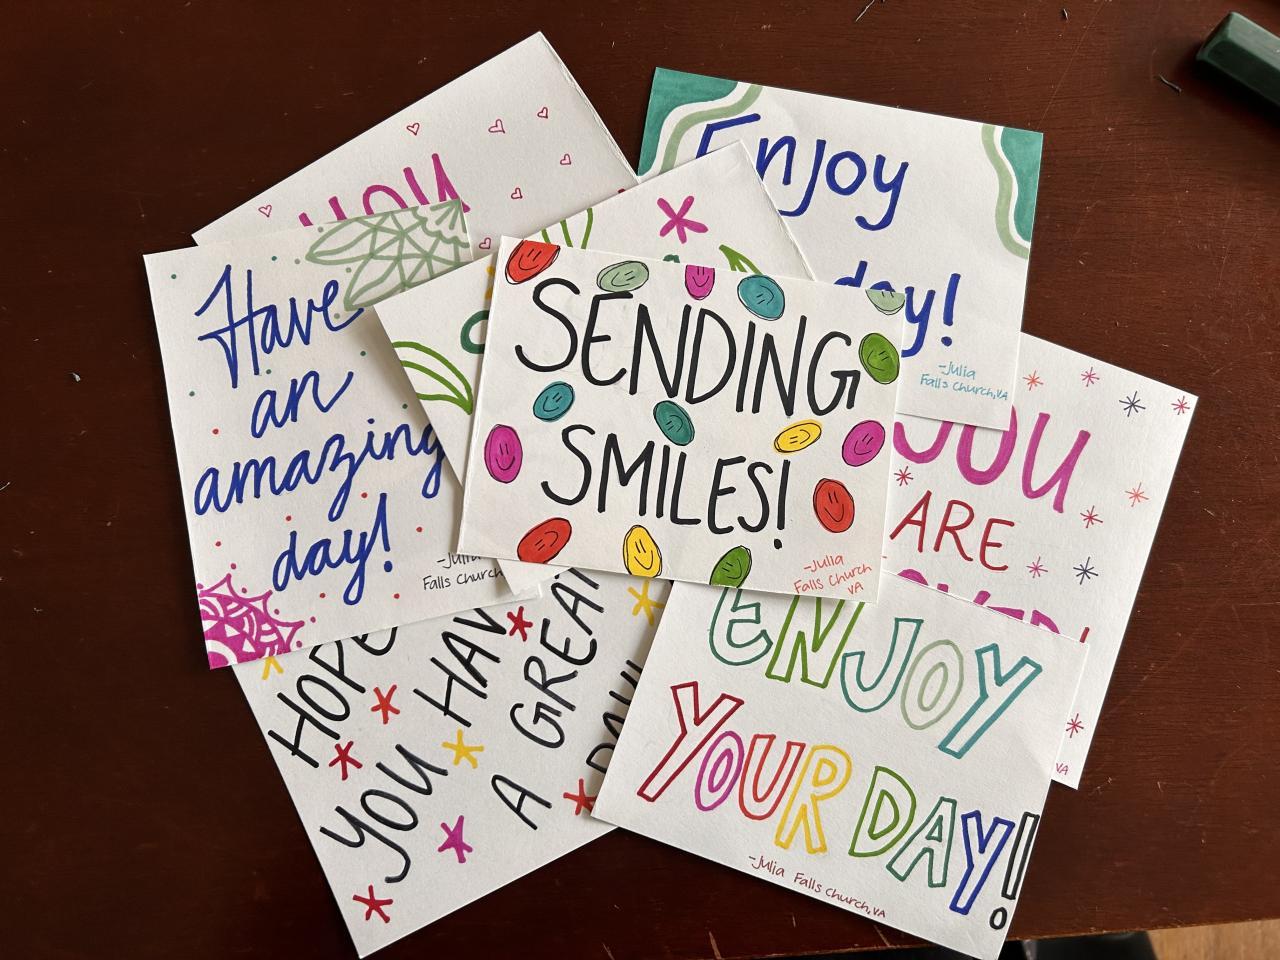 YOU
Enjoy
day!
-Julia
Falls Church, VA
Have
an
amazing
day!
-Julia
Falls Church
SENDING
SMILES!
-Julia
Falls Church
VA
YOU
ARE
HOPE
YOU HAVE
A GREAT
DAY
ENJOY
YOUR DAY!
-Julia Falls Church, VA
VA